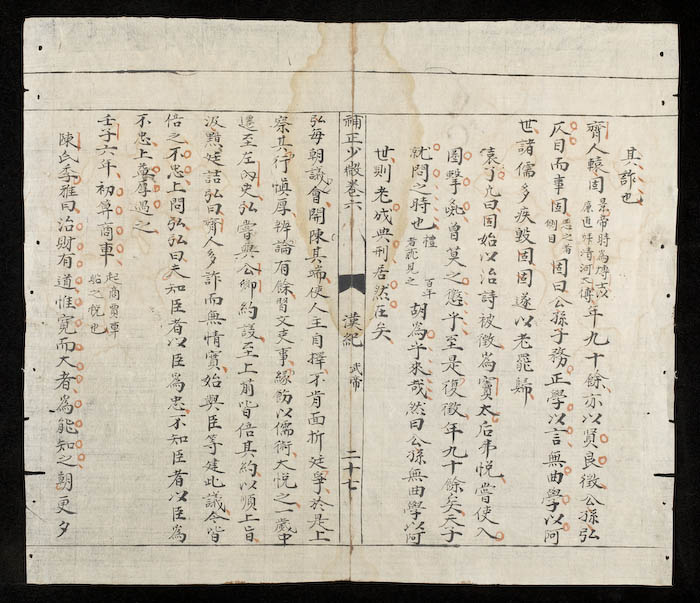 其詐也
齊人轅固景帝時為博士以廉進拜清河太傅年九十餘亦以賢良徵公孫弘
仄目而事固惡之者側目固曰公孫子務正學以言無曲學以阿
世諸儒多疾毀固固遂以老罷歸
袁了凡曰固始以治詩被徵為竇太后弗悅嘗使入
圈擊彘曾莫之懲乎至是復徵年九十餘矣天子
就問之時也禮百年者就見之胡為乎來哉然曰公孫無曲學以阿
世則老成典刑居然在矣
補正少微卷六 漢紀 武帝 二十七
弘每朝議會開陳其端使人主自擇不肯面折廷爭於是上
察其行慎厚辨論有餘習文吏事緣飾以儒術大悅之一歲中
遷至左內史弘嘗與公卿約議至上前皆倍其約以順上旨
汲黯廷詰弘曰齊人多詐而無情實始與臣等建此議今皆
倍之不忠上問弘弘曰夫知臣者以臣為忠不知臣者以臣為
不忠上益厚遇之
壬子六年初算商車起商賈車船之稅也
陳氏季雅曰治財有道惟寬而大者為能知之朝更夕